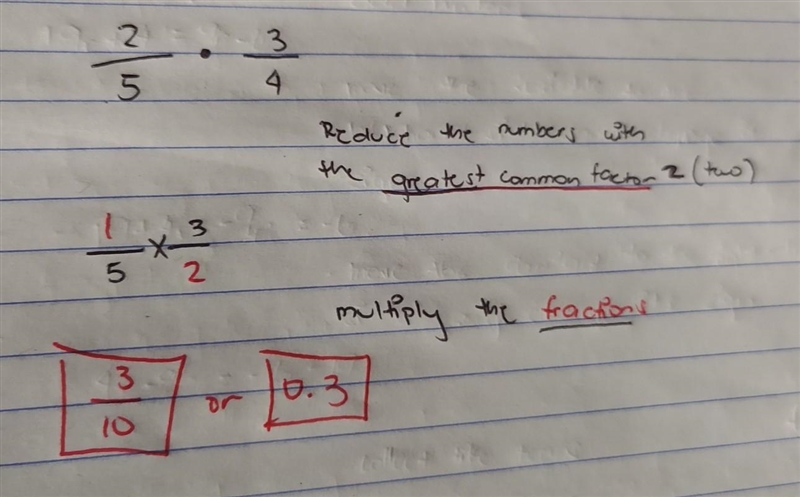 2/5 · 3/4
Reduce the numbers with
the greatest common factor 2 (two)
1/5 × 3/2
multiply the fractions
3/10 or 0.3